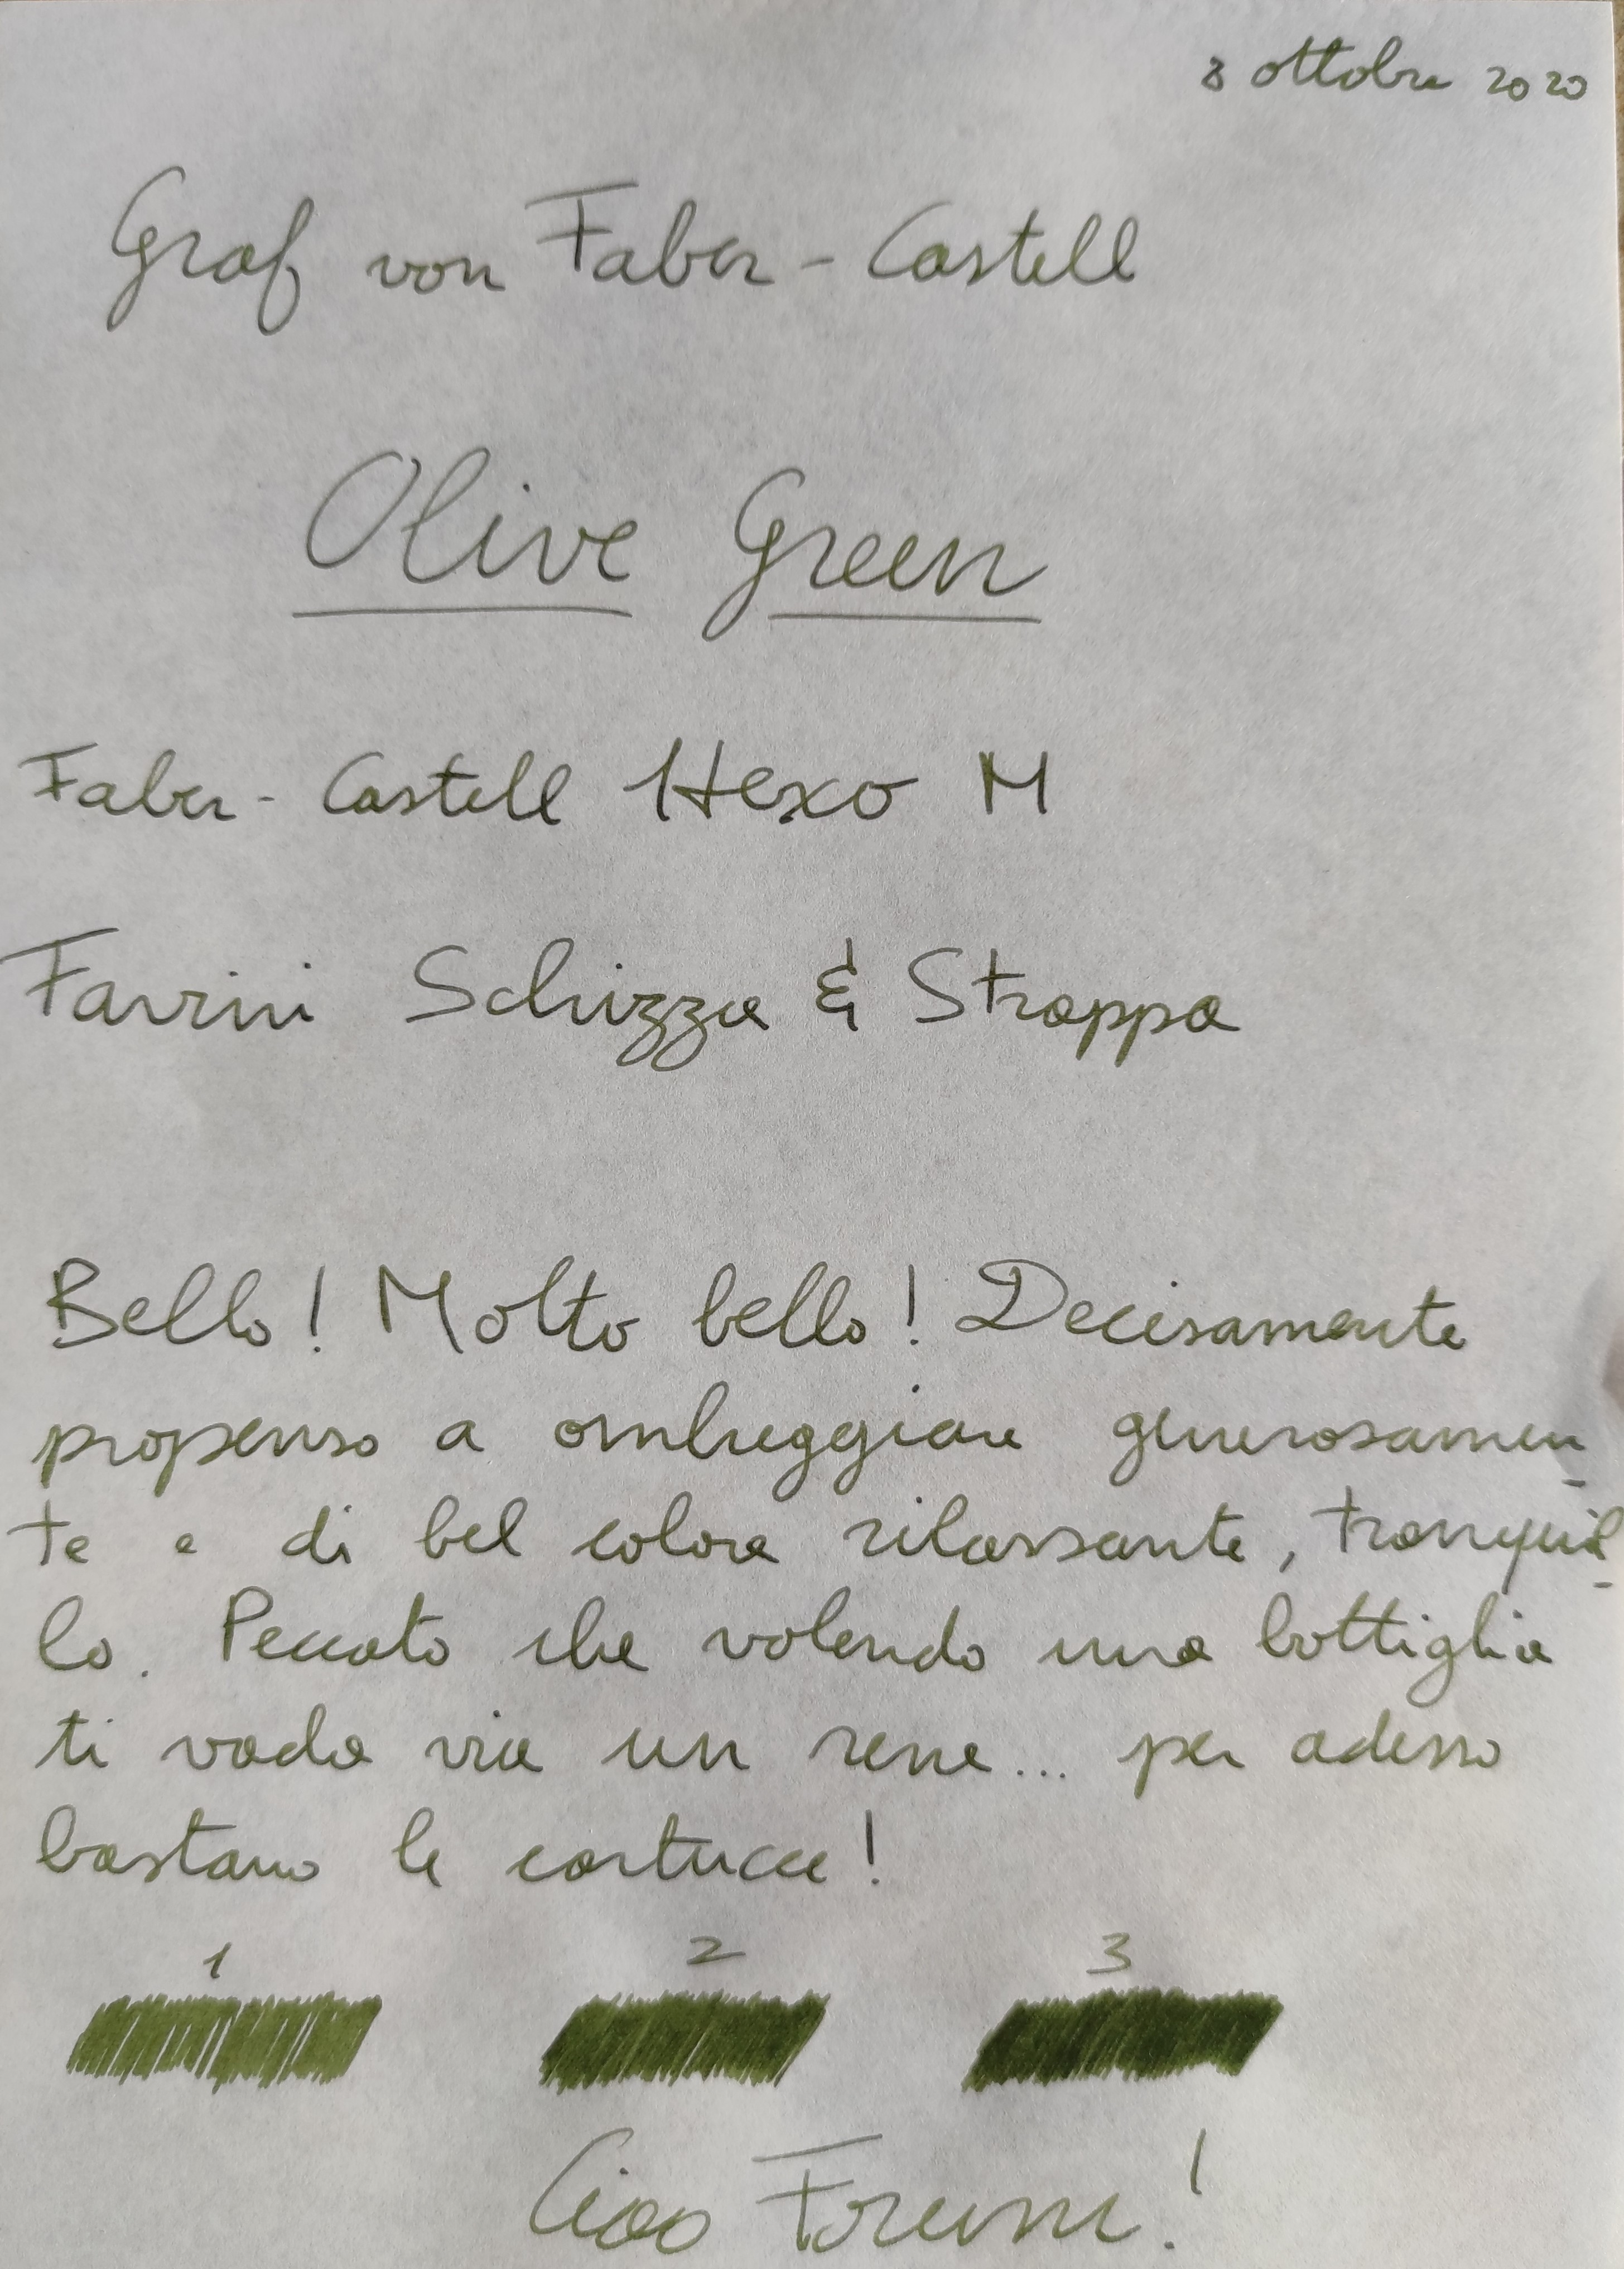 8 ottobre 2020
Graf von Faber-Castell
Olive Green
Faber-Castell Hexo M
Favini Schizza & Strappa
Bello! Molto bello! Decisamente
propenso a ombreggiare generosamen-
te e di bel colore rilassante, tranquil-
lo. Peccato che volendo una bottiglia
ti vada via un rene... per adesso
bastano le cartucce!
1 2 3
Ciao Forum!